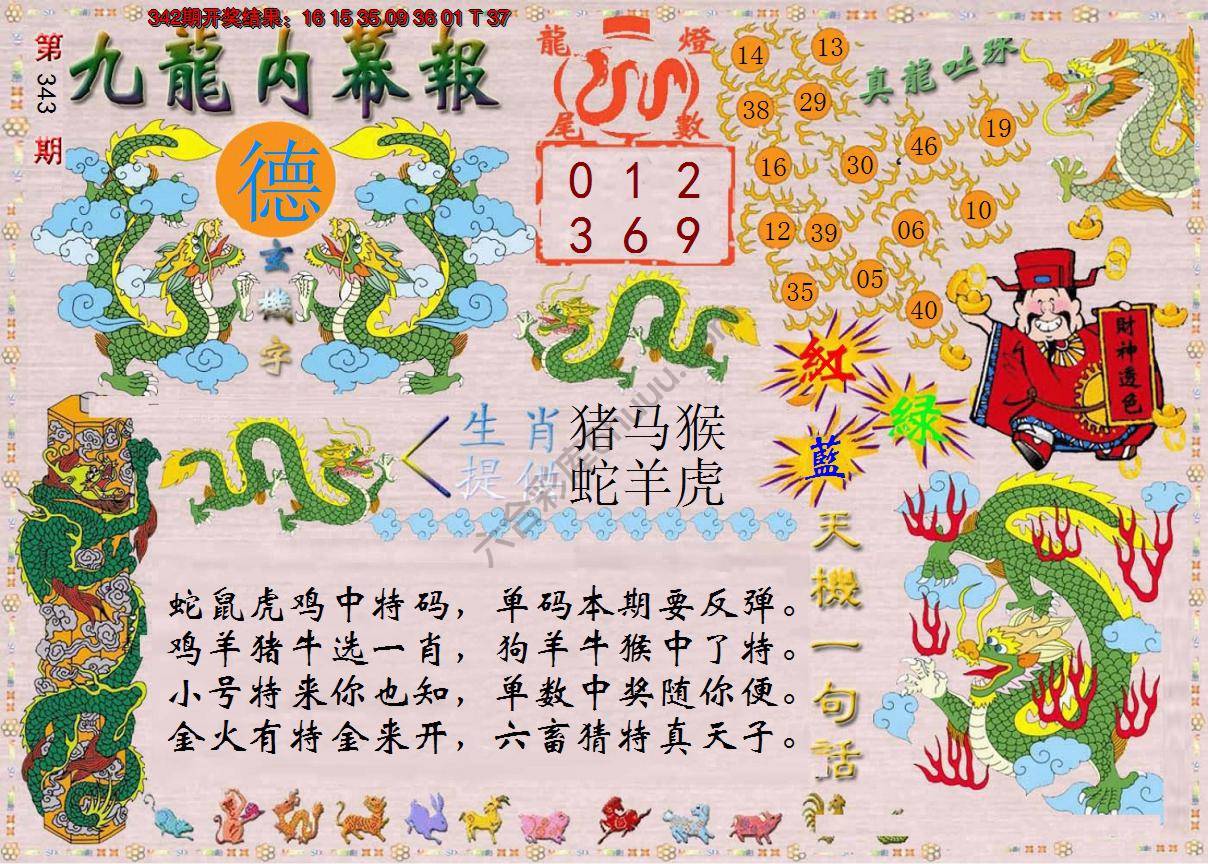 342期开奖结果：16 15 35.09 36 01 T 37
第343期
九龍内幕報
德
玄機字
龍燈
尾數
0 1 2
3 6 9
真龍吐珠
14 13
38 29
16 30 46 19
12 39 06 10
35 05 40
財神透色
紅
綠
藍
生肖 猪马候
提供 蛇羊虎
六合彩库
天機一句話
蛇鼠虎鸡中特码，单码本期要反弹。
鸡羊猪牛选一肖，狗羊牛猴中了特。
小号特来你也知，单数中奖随你便。
金火有特金来开，六畜猜特真天子。